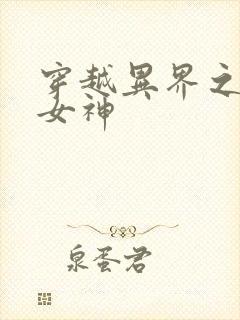 穿越異界之
女神
泉蛋君